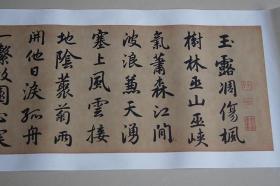 玉露凋傷楓
樹林巫山巫峽
氣蕭森江間
波浪兼天湧
塞上風雲接
地陰藂菊兩
開他日淚孤舟
一繫故園心